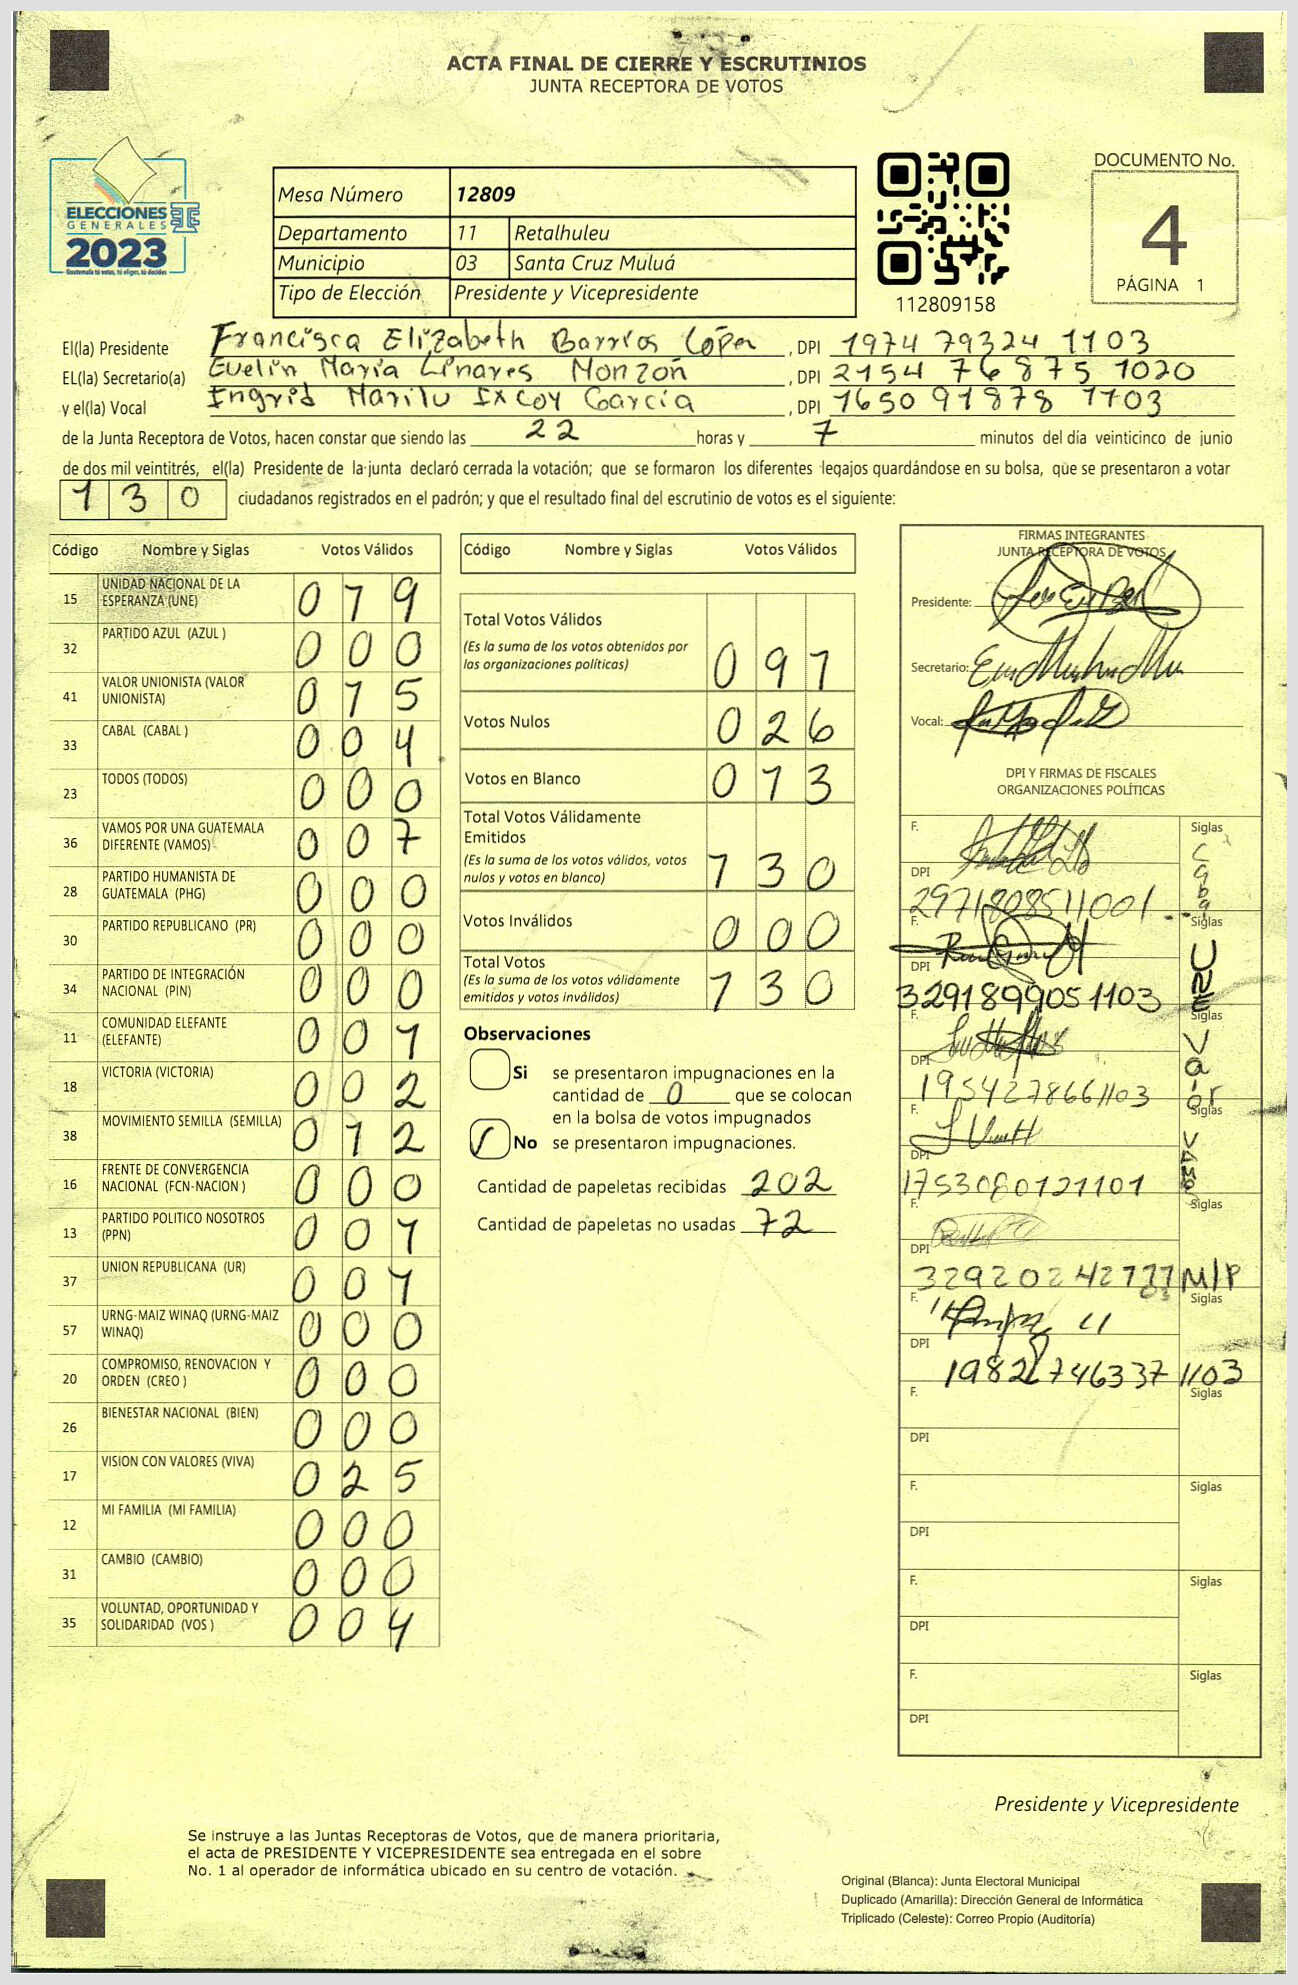 ACTA FINAL DE CIERRE Y ESCRUTINIOS
JUNTA RECEPTORA DE VOTOS
ELECCIONES
GENERALES
2023
Guatemala tú votas, tú eliges, tú decides
Mesa Número 12809
Departamento 11 Retalhuleu
Municipio 03 Santa Cruz Muluá
Tipo de Elección Presidente y Vicepresidente
112809158
DOCUMENTO No.
4
PÁGINA 1
El(la) Presidente Francisca Elizabeth Barrios López , DPI 1974 79324 1103
EL(la) Secretario(a) Evelin María Linares Monzón , DPI 2154 76875 1020
y el(la) Vocal Ingrid Marilu Ixcoy García , DPI 1650 91878 1103
de la Junta Receptora de Votos, hacen constar que siendo las 22 horas y 7 minutos del día veinticinco de junio
de dos mil veintitrés, el(la) Presidente de la junta declaró cerrada la votación; que se formaron los diferentes legajos quardándose en su bolsa, que se presentaron a votar
130 ciudadanos registrados en el padrón; y que el resultado final del escrutinio de votos es el siguiente:
Código Nombre y Siglas Votos Válidos
15 UNIDAD NACIONAL DE LA ESPERANZA (UNE) 019
32 PARTIDO AZUL (AZUL ) 000
41 VALOR UNIONISTA (VALOR UNIONISTA) 015
33 CABAL (CABAL ) 004
23 TODOS (TODOS) 000
36 VAMOS POR UNA GUATEMALA DIFERENTE (VAMOS) 007
28 PARTIDO HUMANISTA DE GUATEMALA (PHG) 000
30 PARTIDO REPUBLICANO (PR) 000
34 PARTIDO DE INTEGRACIÓN NACIONAL (PIN) 000
11 COMUNIDAD ELEFANTE (ELEFANTE) 001
18 VICTORIA (VICTORIA) 002
38 MOVIMIENTO SEMILLA (SEMILLA) 012
16 FRENTE DE CONVERGENCIA NACIONAL (FCN-NACION ) 000
13 PARTIDO POLITICO NOSOTROS (PPN) 001
37 UNION REPUBLICANA (UR) 001
57 URNG-MAIZ WINAQ (URNG-MAIZ WINAQ) 000
20 COMPROMISO, RENOVACION Y ORDEN (CREO ) 000
26 BIENESTAR NACIONAL (BIEN) 000
17 VISION CON VALORES (VIVA) 025
12 MI FAMILIA (MI FAMILIA) 000
31 CAMBIO (CAMBIO) 000
35 VOLUNTAD, OPORTUNIDAD Y SOLIDARIDAD (VOS ) 004
Código Nombre y Siglas Votos Válidos
Total Votos Válidos
(Es la suma de los votos obtenidos por
las organizaciones políticas) 091
Votos Nulos 026
Votos en Blanco 013
Total Votos Válidamente
Emitidos
(Es la suma de los votos válidos, votos
nulos y votos en blanco) 130
Votos Inválidos 000
Total Votos
(Es la suma de los votos válidamente
emitidos y votos inválidos) 130
Observaciones
Si se presentaron impugnaciones en la
cantidad de 0 que se colocan
en la bolsa de votos impugnados
No se presentaron impugnaciones.
Cantidad de papeletas recibidas 202
Cantidad de papeletas no usadas 72
FIRMAS INTEGRANTES
JUNTA RECEPTORA DE VOTOS
Presidente:
Secretario:
Vocal:
DPI Y FIRMAS DE FISCALES
ORGANIZACIONES POLÍTICAS
F. Siglas
DPI Cabal
2971808511001
F. Siglas
DPI UNE
3291899051103
F. Siglas
DPI Valor
1954278661103
F. Siglas
DPI
1753080121101
F. Siglas
DPI
F. Siglas
DPI
1982746337 1103
F. Siglas
DPI
F. Siglas
DPI
F. Siglas
DPI
F. Siglas
DPI
Presidente y Vicepresidente
Se instruye a las Juntas Receptoras de Votos, que de manera prioritaria,
el acta de PRESIDENTE Y VICEPRESIDENTE sea entregada en el sobre
No. 1 al operador de informática ubicado en su centro de votación.
Original (Blanca): Junta Electoral Municipal
Duplicado (Amarilla): Dirección General de Informática
Triplicado (Celeste): Correo Propio (Auditoría)